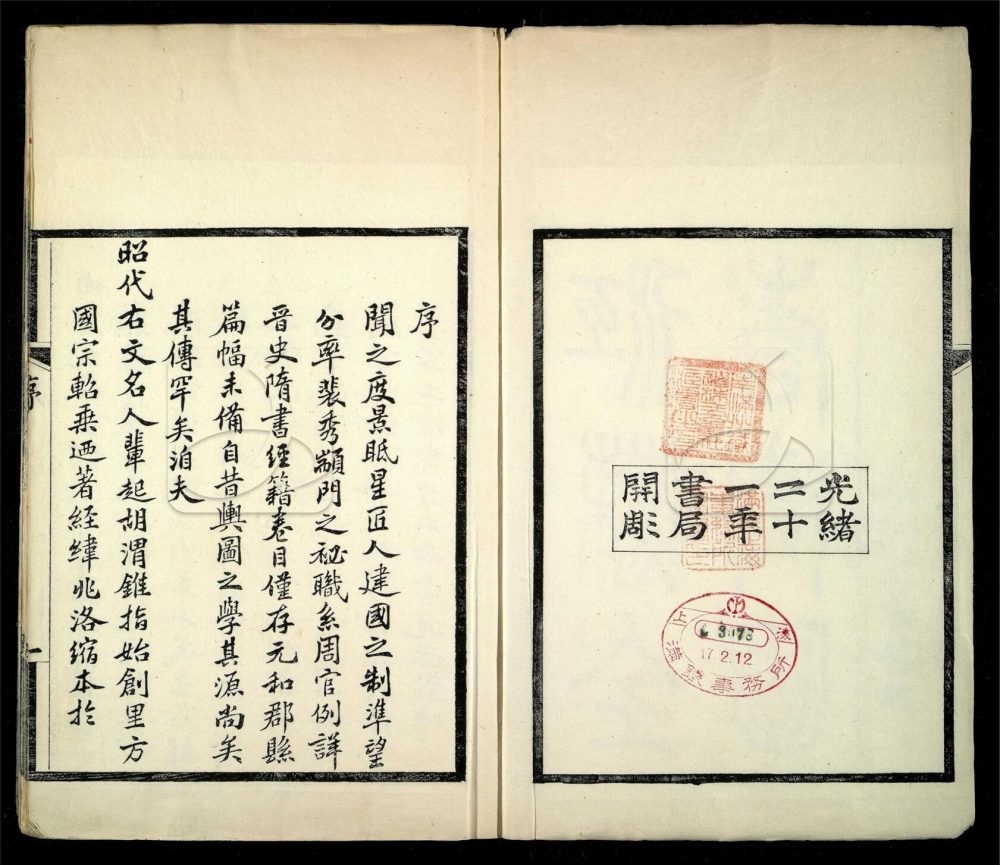 光緒
二十
一年
書局
開彫
上海
滿鐵事務所
3078
17.2.12
序
聞之度景眡星匠人建國之制準望
分率裴秀顓門之祕職系周官例詳
晉史隋書經籍卷目僅存元和郡縣
篇幅未備自昔輿圖之學其源尚矣
其傳罕矣洎夫
昭代右文名人輩起胡渭錐指始創里方
國宗軺乗迺著經緯兆洛縮本於
序
一